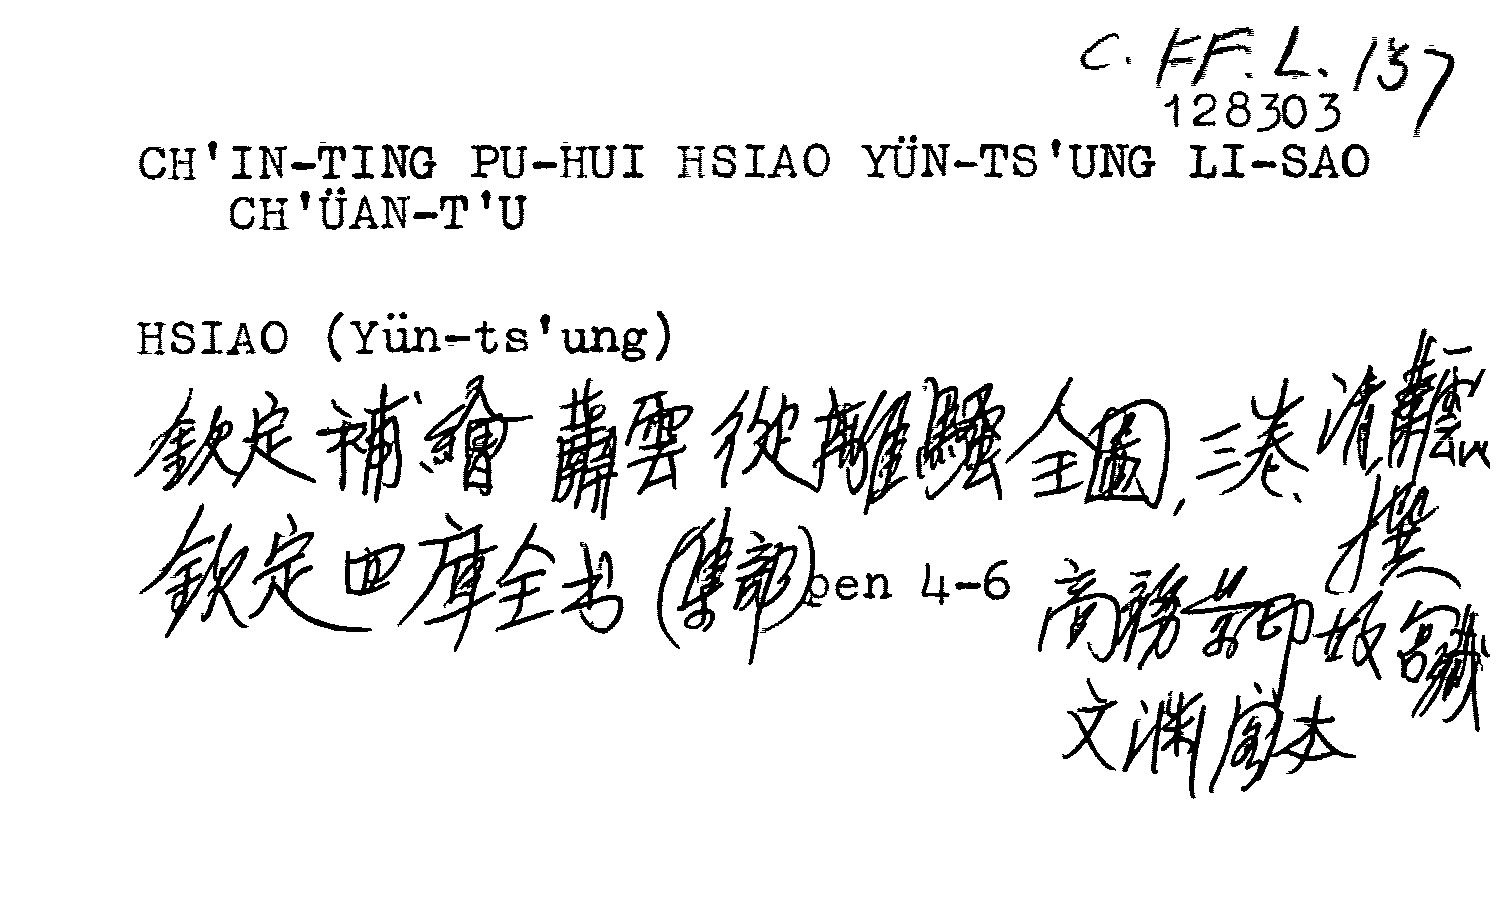 C. FF. L. 137
128303
CH'IN-TING PU-HUI HSIAO YÜN-TS'UNG LI-SAO
CH'ÜAN-T'U
HSIAO (Yün-ts'ung)
欽定補繪蕭雲從離騷全圖, 三卷. 清蕭雲從
撰
欽定四庫全书 (集部) pen 4-6 商務景印故宮藏
文淵閣本